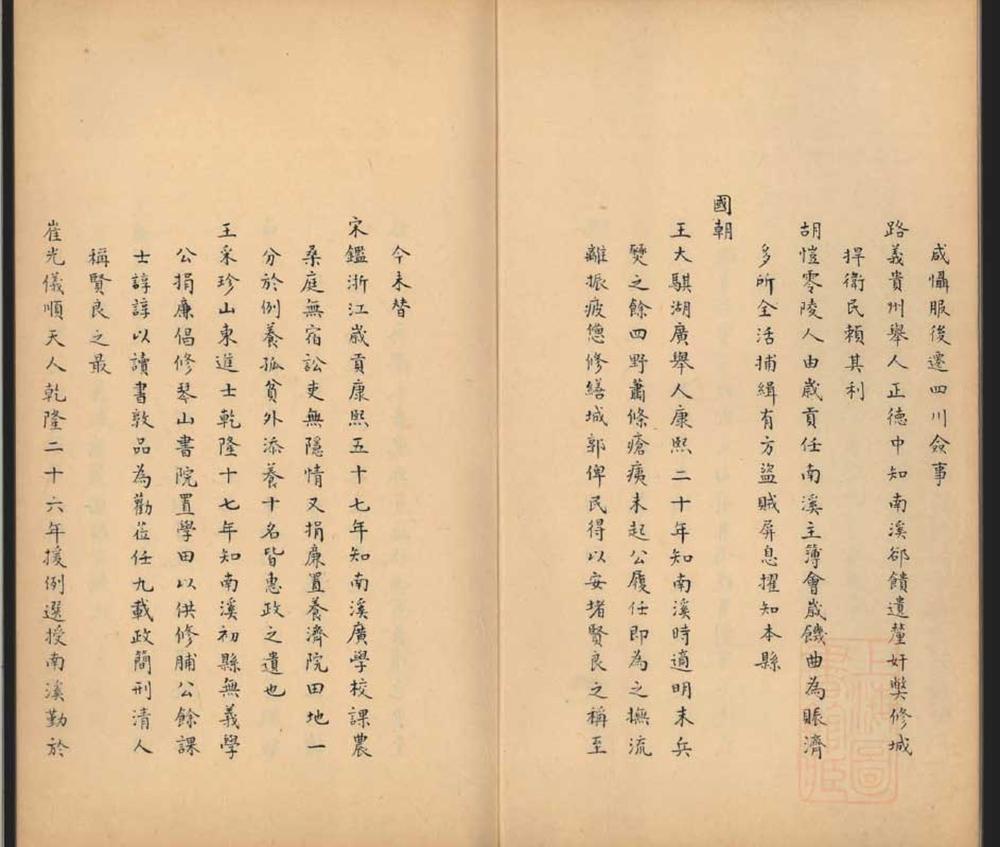 咸懾服後遷四川僉事
路義貴州舉人正德中知南溪郤饋遺釐奸獘修城
捍衛民賴其利
胡愷零陵人由歲貢任南溪主簿會歲饑曲為賑濟
多所全活捕緝有方盜賊屏息擢知本縣
國朝
王大騏湖廣舉人康熙二十年知南溪時適明末兵
燹之餘四野蕭條瘡痍未起公履任即為之撫流
離振疲憊修繕城郭俾民得以安堵賢良之稱至
今未替
宋鑑浙江歲貢康熙五十七年知南溪廣學校課農
桑庭無宿訟吏無隱情又捐廉置養濟院田地一
分於例養孤貧外添養十名皆惠政之遺也
王采珍山東進士乾隆十七年知南溪初縣無義學
公捐廉倡修琴山書院置學田以供修脯公餘課
士諄諄以讀書敦品為勸蒞任九載政簡刑清人
稱賢良之最
崔光儀順天人乾隆二十六年援例選授南溪勤於